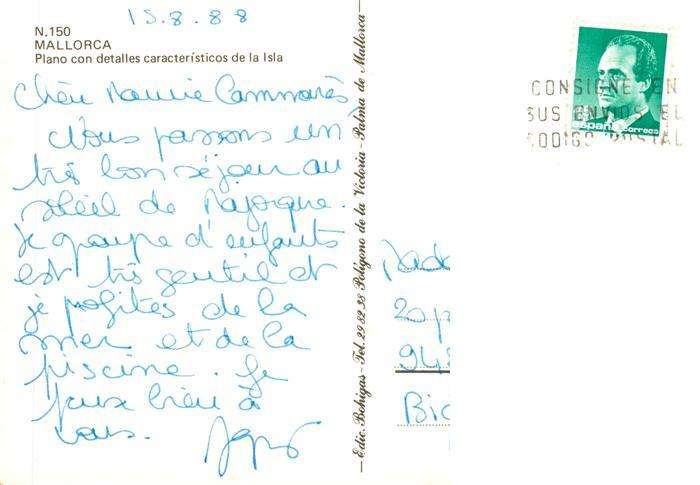 15.8.88
N.150
MALLORCA
Plano con detalles característicos de la Isla
Chère Mamie Cammarès
Nous passons un
très bon séjour au
soleil de Majorque.
Le groupe d'enfants
est très gentil et
je profites de la
mer et de la
piscine. Je
pense bien à
vous.
Edic. Bohigas - Tel. 29 82 38 Polígono de la Victoria - Palma de Mallorca
CONSIGNE EN
SUS ENVIOS EL
CODIGO POSTAL
España correos
Mada
20
948
Bic